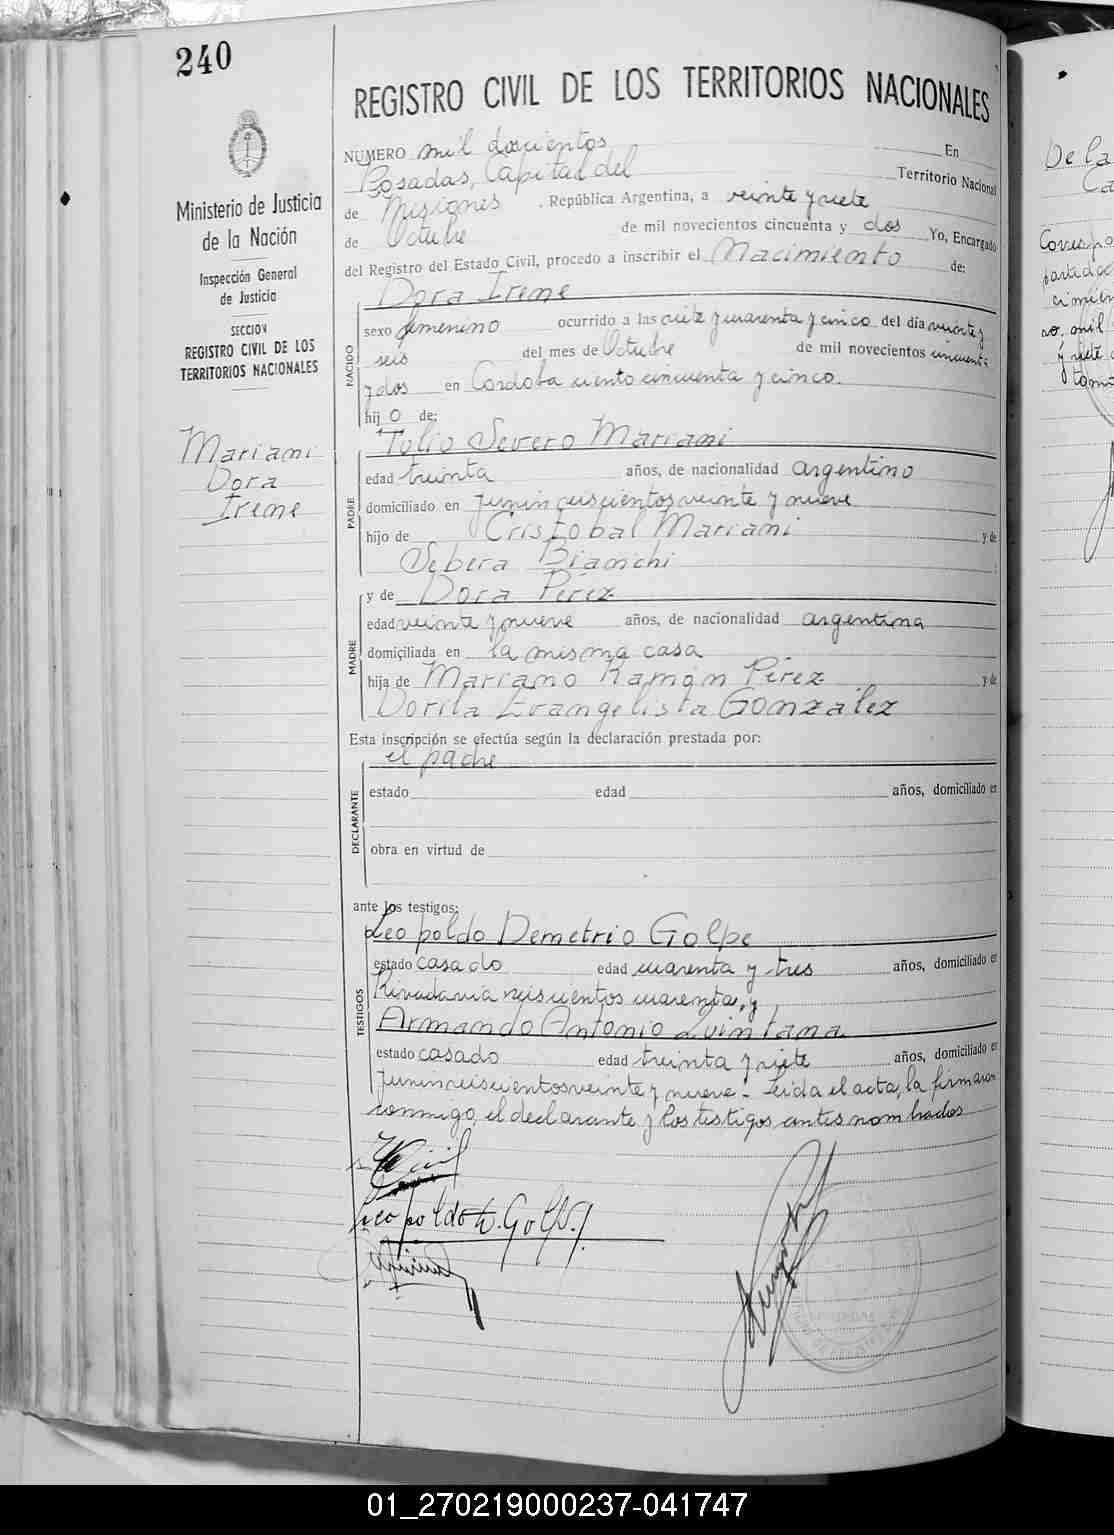 240
REGISTRO CIVIL DE LOS TERRITORIOS NACIONALES
Ministerio de Justicia
de la Nación
Inspección General
de Justicia
SECCION
REGISTRO CIVIL DE LOS
TERRITORIOS NACIONALES
Mariani
Dora
Irene
NUMERO mil doscientos En
Posadas, Capital del Territorio Nacional
de Misiones , República Argentina, a veinte y siete
de Octubre de mil novecientos cincuenta y dos Yo, Encargado
del Registro del Estado Civil, procedo a inscribir el Nacimiento de:
Dora Irene
NACIDO
sexo femenino ocurrido a las siete y cuarenta y cinco del día veinte y
seis del mes de Octubre de mil novecientos cincuenta
y dos en Cordoba ciento cincuenta y cinco.
hij o de:
Tulio Severo Mariani
PADRE
edad treinta años, de nacionalidad argentino
domiciliado en Junin seiscientos veinte y nueve
hijo de Cristobal Mariani y de
Sebera Bianchi
y de Dora Pérez
MADRE
edad veinte y nueve años, de nacionalidad argentina
domiciliada en la misma casa
hija de Mariano Ramón Pérez y de
Dorila Evangelista González
Esta inscripción se efectúa según la declaración prestada por:
el padre
DECLARANTE
estado edad años, domiciliado en
obra en virtud de
ante los testigos:
Leopoldo Demetrio Golpe
TESTIGOS
estado casado edad cuarenta y tres años, domiciliado en
Rivadavia seiscientos cuarenta, y
Armando Antonio Quintana
estado casado edad treinta y siete años, domiciliado en
Junin seiscientos veinte y nueve - Leida el acta, la firmaron
conmigo, el declarante y los testigos antes nombrados
Leopoldo D. Golpe
De la
Ca
Corresp
partida d
cimien
no. mil
y siete d
toma
01_270219000237-041747